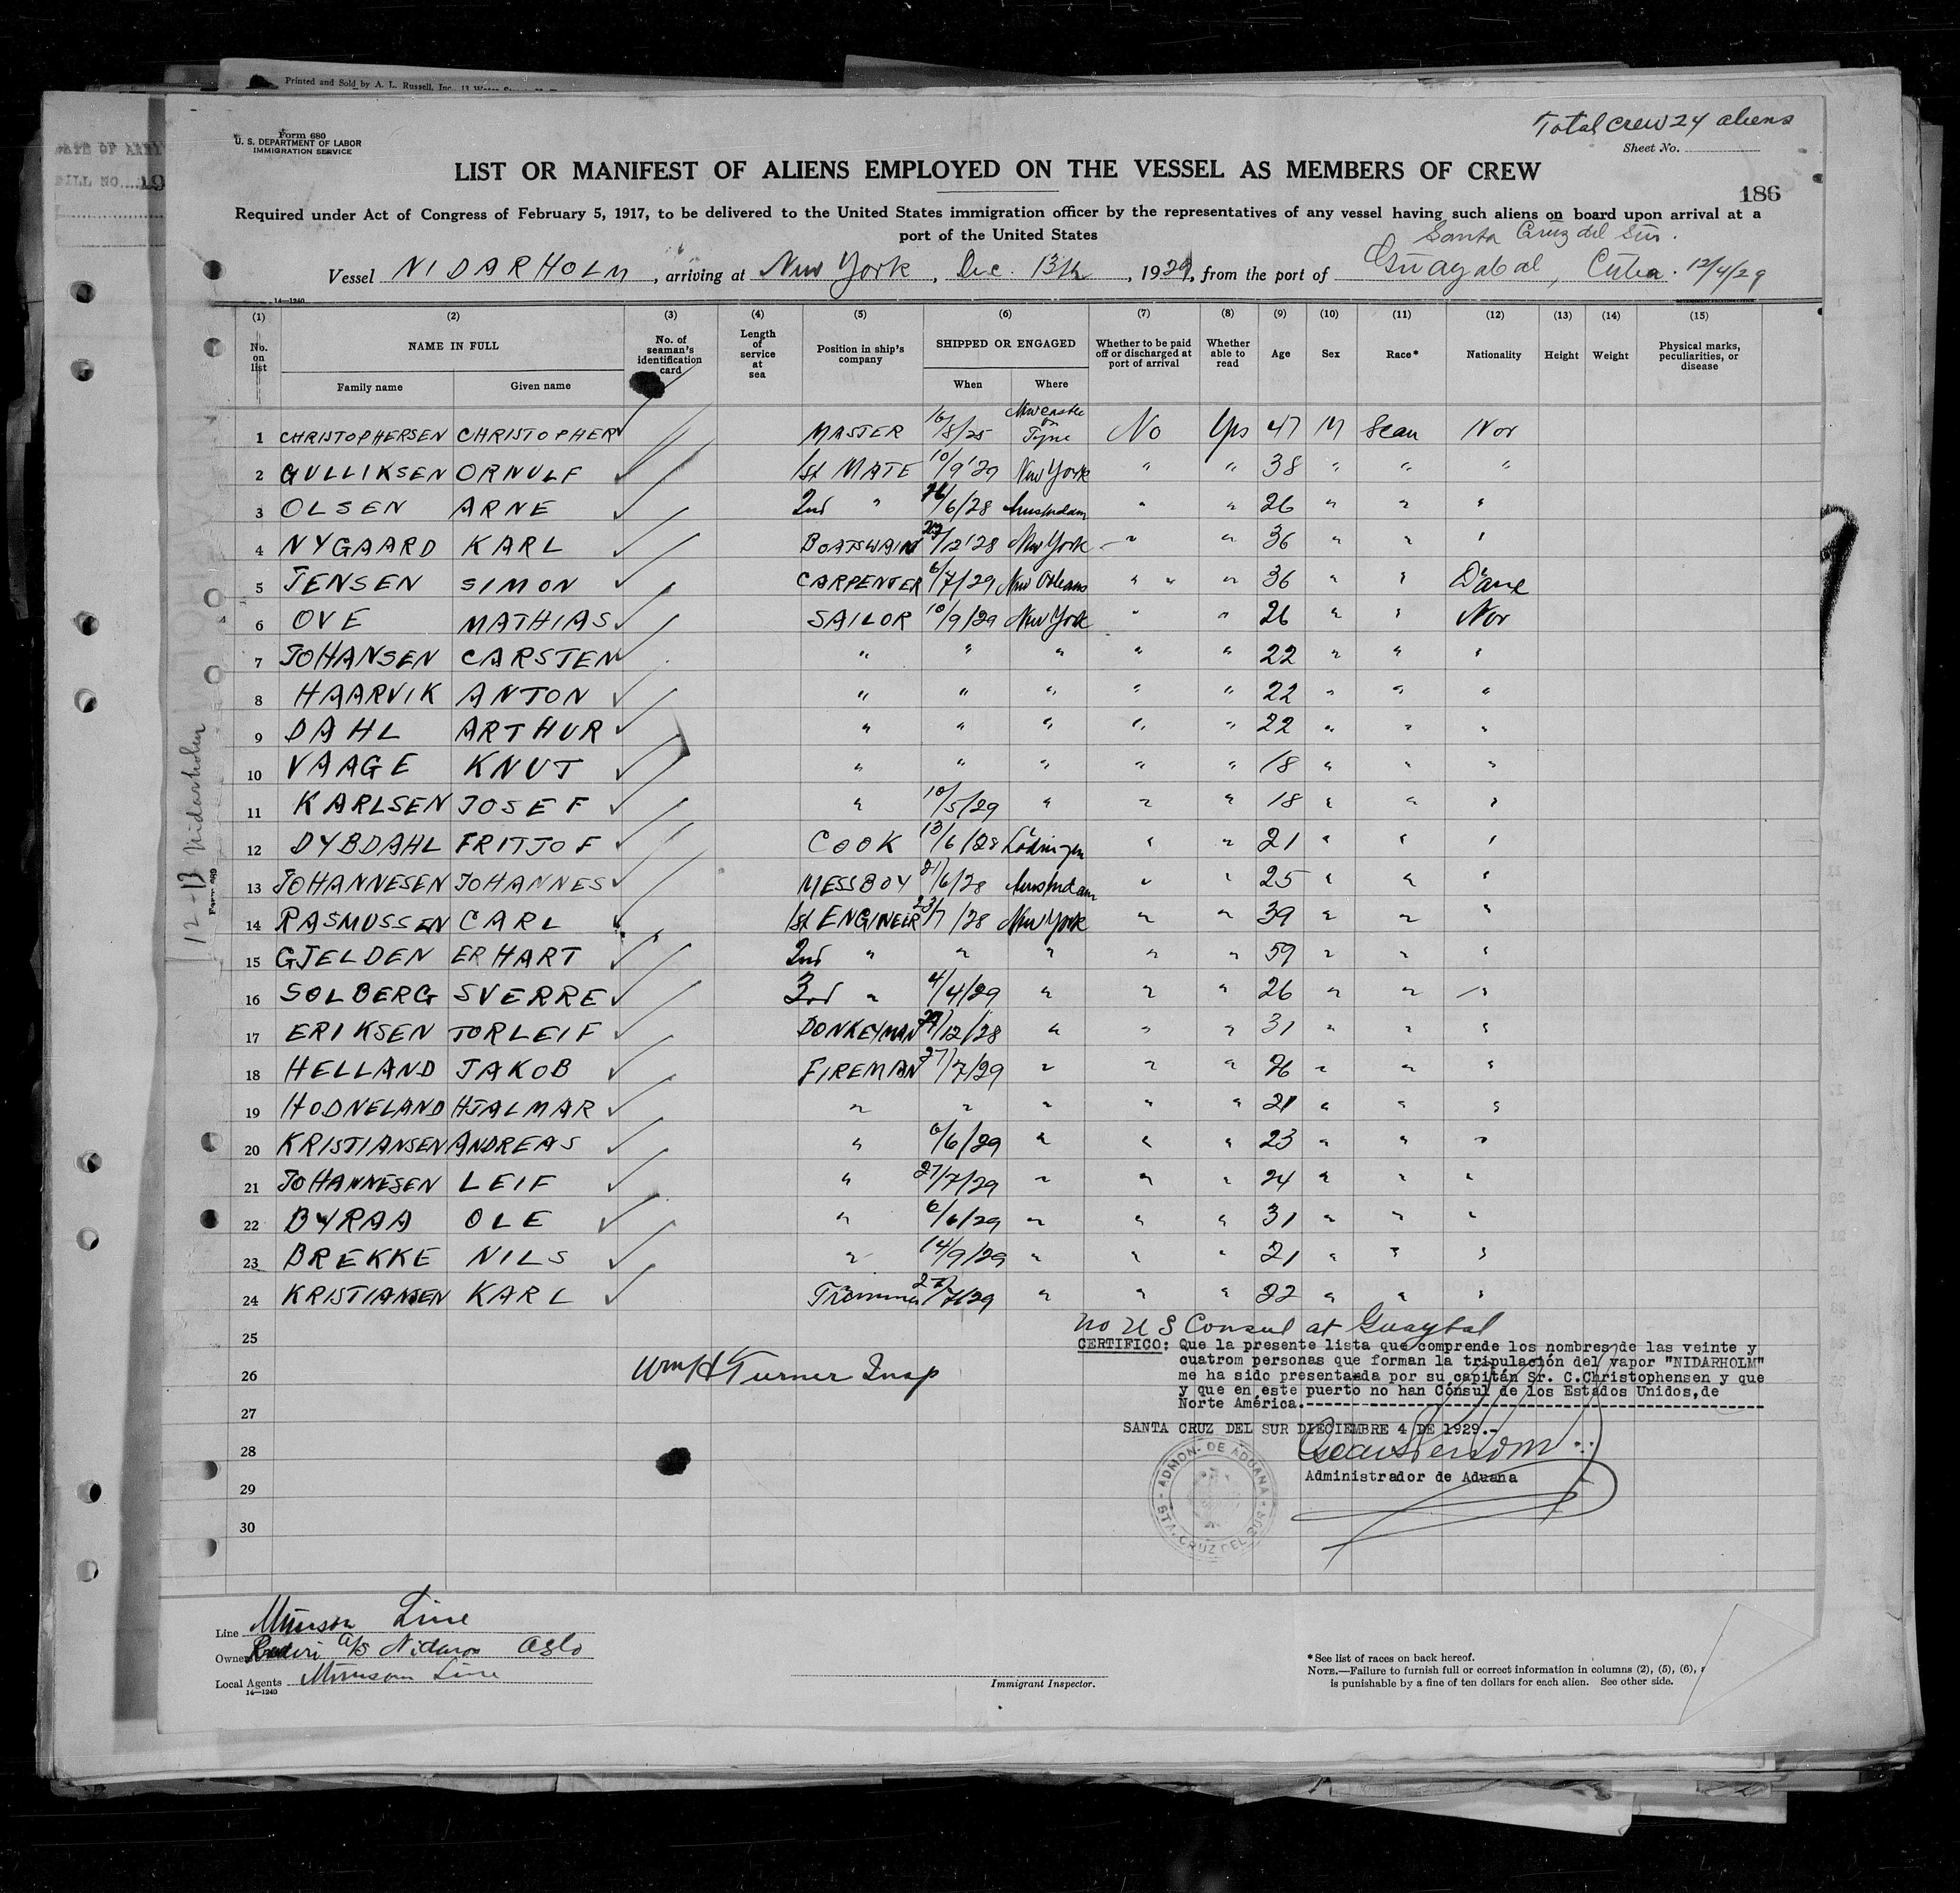 Printed and Sold by A. L. Russell, Inc.
Total crew 24 aliens
Form 680
U. S. DEPARTMENT OF LABOR
IMMIGRATION SERVICE
Sheet No.
LIST OR MANIFEST OF ALIENS EMPLOYED ON THE VESSEL AS MEMBERS OF CREW
186
Required under Act of Congress of February 5, 1917, to be delivered to the United States immigration officer by the representatives of any vessel having such aliens on board upon arrival at a
port of the United States
Santa Cruz del Sur.
Vessel NIDARHOLM, arriving at New York, Dec. 13th, 1929, from the port of Guayabal, Cuba. 12/4/29
14—1240
(1) (2) (3) (4) (5) (6) (7) (8) (9) (10) (11) (12) (13) (14) (15)
No. on list NAME IN FULL No. of seaman's identification card Length of service at sea Position in ship's company SHIPPED OR ENGAGED Whether to be paid off or discharged at port of arrival Whether able to read Age Sex Race* Nationality Height Weight Physical marks, peculiarities, or disease
Family name Given name When Where
1 CHRISTOPHERSEN CHRISTOPHER MASTER 16/8/25 Newcastle on Tyne No Yes 47 M Scan Nor
2 GULLIKSEN ORNULF 1st MATE 10/9'29 New York " " 38 " " "
3 OLSEN ARNE 2nd " /6/28 Amsterdam " " 26 " " "
4 NYGAARD KARL BOATSWAIN 27/12'28 New York " " 36 " " "
5 JENSEN SIMON CARPENTER 6/7/29 New Orleans " " " 36 " " Dane
6 OVE MATHIAS SAILOR 10/9/29 New York " " 26 " " Nor
7 JOHANSEN CARSTEN " " " " " 22 " " "
8 HAARVIK ANTON " " " " " 22 " " "
9 DAHL ARTHUR " " " " " 22 " " "
10 VAAGE KNUT " " " " " 18 " " "
11 KARLSEN JOSEF " 10/5/29 " " " 18 " " "
12 DYBDAHL FRITJOF COOK 13/6/28 Lödingen " " 21 " " "
13 JOHANNESEN JOHANNES MESSBOY 21/6/28 Amsterdam " " 25 " " "
14 RASMUSSEN CARL 1st ENGINEER 23/7/28 New York " " 39 " " "
15 GJELDEN ERHART 2nd " " " " " 59 " " "
16 SOLBERG SVERRE 3rd " 4/4/29 " " " 26 " " "
17 ERIKSEN TORLEIF DONKEYMAN /12/28 " " " 31 " " "
18 HELLAND JAKOB FIREMAN 27/7/29 " " " 26 " " "
19 HODNELAND HJALMAR " " " " " 21 " " "
20 KRISTIANSEN ANDREAS " 6/6/29 " " " 23 " " "
21 JOHANNESEN LEIF " 27/7/29 " " " 24 " " "
22 BYRAA OLE " 6/6/29 " " " 31 " " "
23 BREKKE NILS " 14/9/29 " " " 21 " " "
24 KRISTIANSEN KARL Trimmer 27/7/29 " " " 22 " " "
25
26
27
28
29
30
no U S Consul at Guaybal
CERTIFICO: Que la presente lista que comprende los nombres de las veinte y
cuatrom personas que forman la tripulación del vapor "NIDARHOLM"
me ha sido presentada por su capitán Sr. C.Christophensen y que
y que en este puerto no han Cónsul de los Estados Unidos,de
Norte América.
SANTA CRUZ DEL SUR DICIEMBRE 4 DE 1929.-
Administrador de Aduana
ADMON. DE ADUANA
STA. CRUZ DEL SUR
Wm H Turner Insp
12-13 Nidarholm
Form 689
Line Munson Line
Owners Rederi a/s Nidaros Oslo
Local Agents Munson Line
14—1240
Immigrant Inspector.
* See list of races on back hereof.
NOTE.—Failure to furnish full or correct information in columns (2), (5), (6),
is punishable by a fine of ten dollars for each alien. See other side.